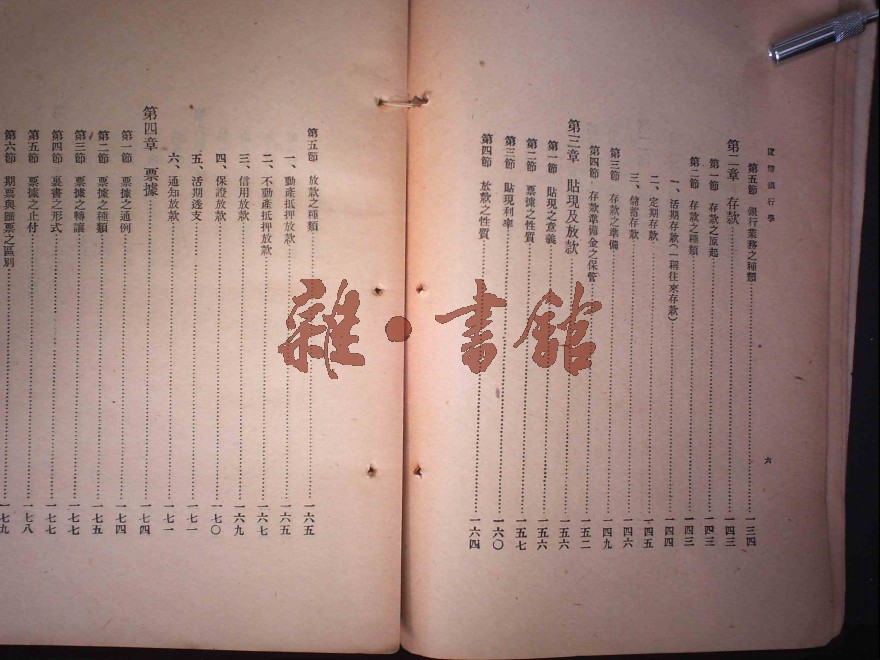 貨幣銀行學
六
第五節 銀行業務之種類 一三四
第二章 存款 一四三
第一節 存款之原起 一四三
第二節 存款之種類 一四三
一、活期存款(一稱往來存款) 一四四
二、定期存款 一四五
三、儲蓄存款 一四六
第三節 存款之準備 一四九
第四節 存款準備金之保管 一五二
第三章 貼現及放款 一五六
第一節 貼現之意義 一五六
第二節 票據之性質 一五七
第三節 貼現利率 一六〇
第四節 放款之性質 一六四
第五節 放款之種類 一六五
一、動產抵押放款 一六五
二、不動產抵押放款 一六七
三、信用放款 一六九
四、保證放款 一七〇
五、活期透支 一七一
六、通知放款 一七一
第四章 票據 一七四
第一節 票據之通例 一七四
第二節 票據之種類 一七五
第三節 票據之轉讓 一七七
第四節 裏書之形式 一七七
第五節 票據之止付 一七八
第六節 期票與匯票之區別 一七九
雜·書館